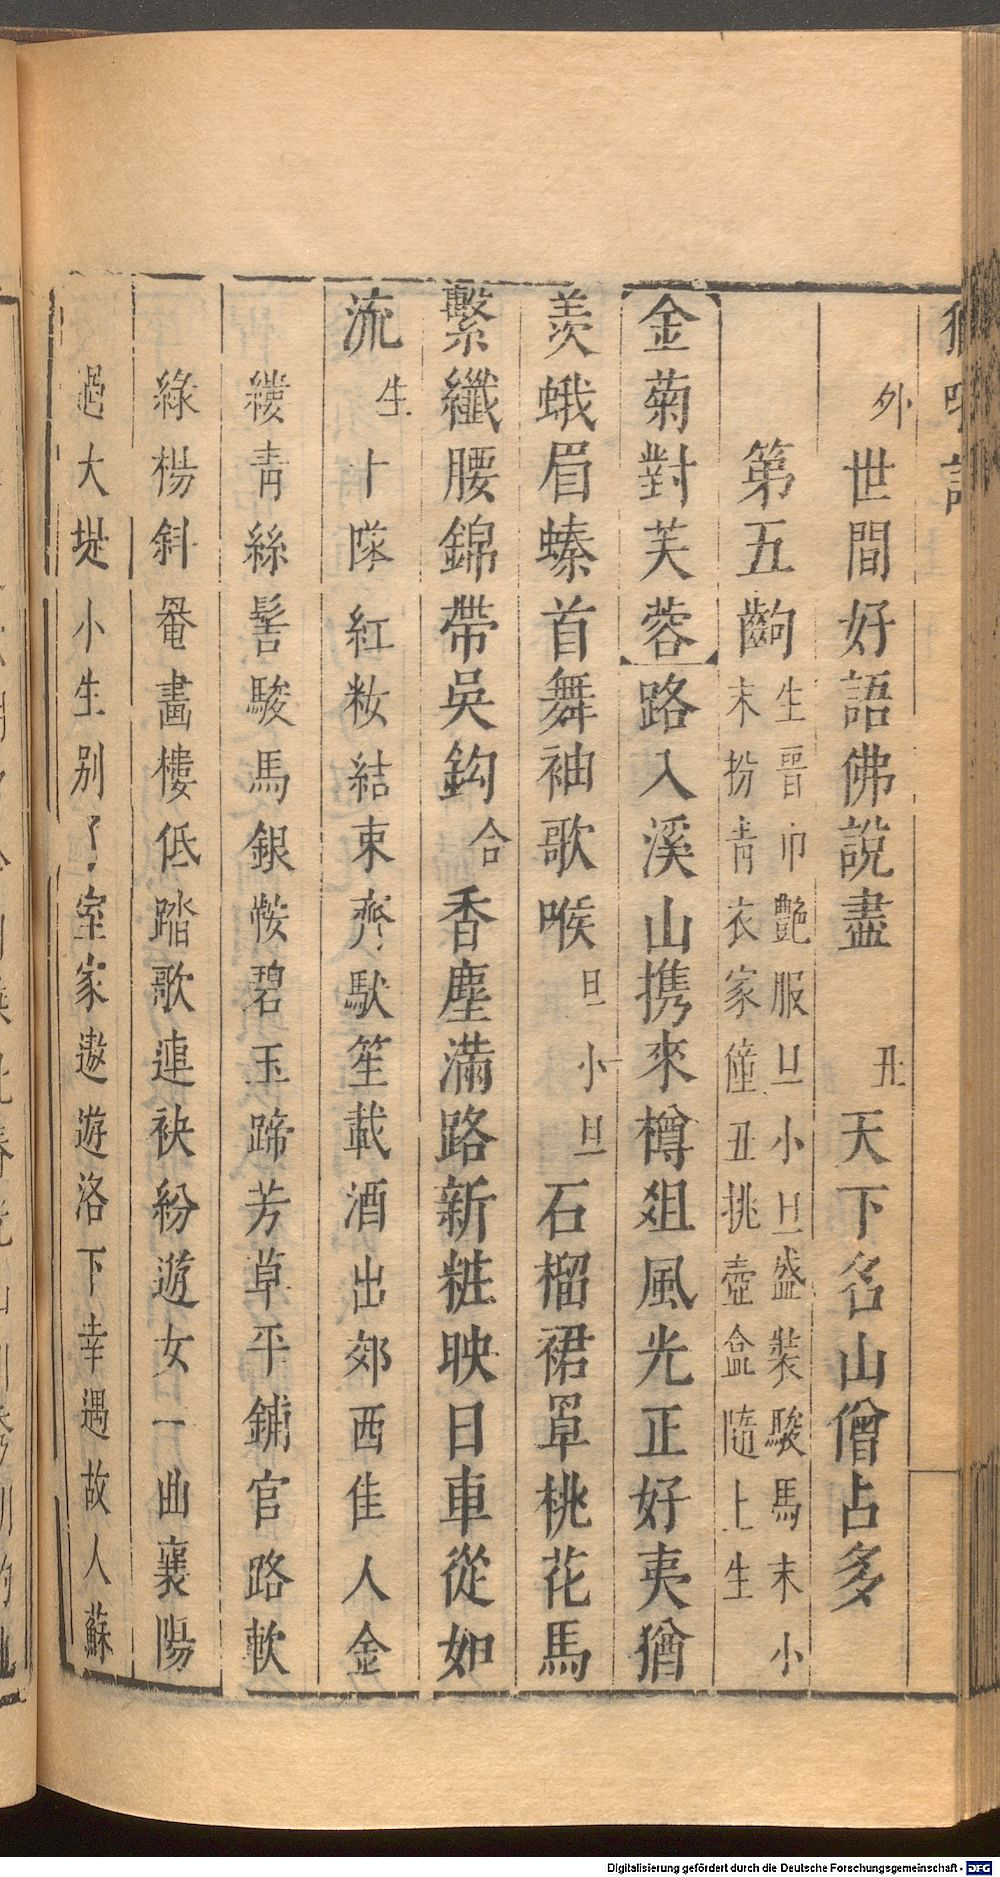 外世間好語佛說盡　丑天下名山僧占多
第五齣生晉巾艷服旦小旦盛裝駿馬末小
末扮青衣家僮丑挑壺盒隨上生
金菊對芙蓉路入溪山携來樽爼風光正好夷猶
羨蛾眉螓首舞袖歌喉旦小旦石榴裙罩桃花馬
繫纖腰錦帶吳鈎合香塵滿路新粧映日車從如
流生十隊紅妝結束齊馱笙載酒出郊西佳人金
縷靑絲髻駿馬銀鞍碧玉蹄芳草平鋪官路軟
綠楊斜罨畫樓低踏歌連袂紛遊女一曲襄陽
過大堤小生别了室家遨遊洛下幸遇故人蘇
Digitalisierung gefördert durch die Deutsche Forschungsgemeinschaft - DFG